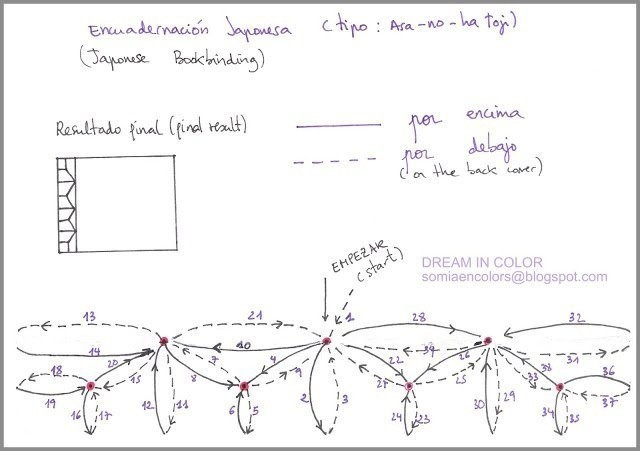 Encuadernación Japonesa (tipo: Asa-no-ha Toji)
(Japanese Bookbinding)
Resultado final (final result)
por encima
por debajo
(on the back cover)
EMPEZAR
(start)
DREAM IN COLOR
somiaencolors@blogspot.com
13 21 1 28 32
14 20 7 10 4 22 26 31
18 15 8 9 27 25 33 38 36
19 16 17 12 11 6 5 2 3 24 23 30 29 34 35 37